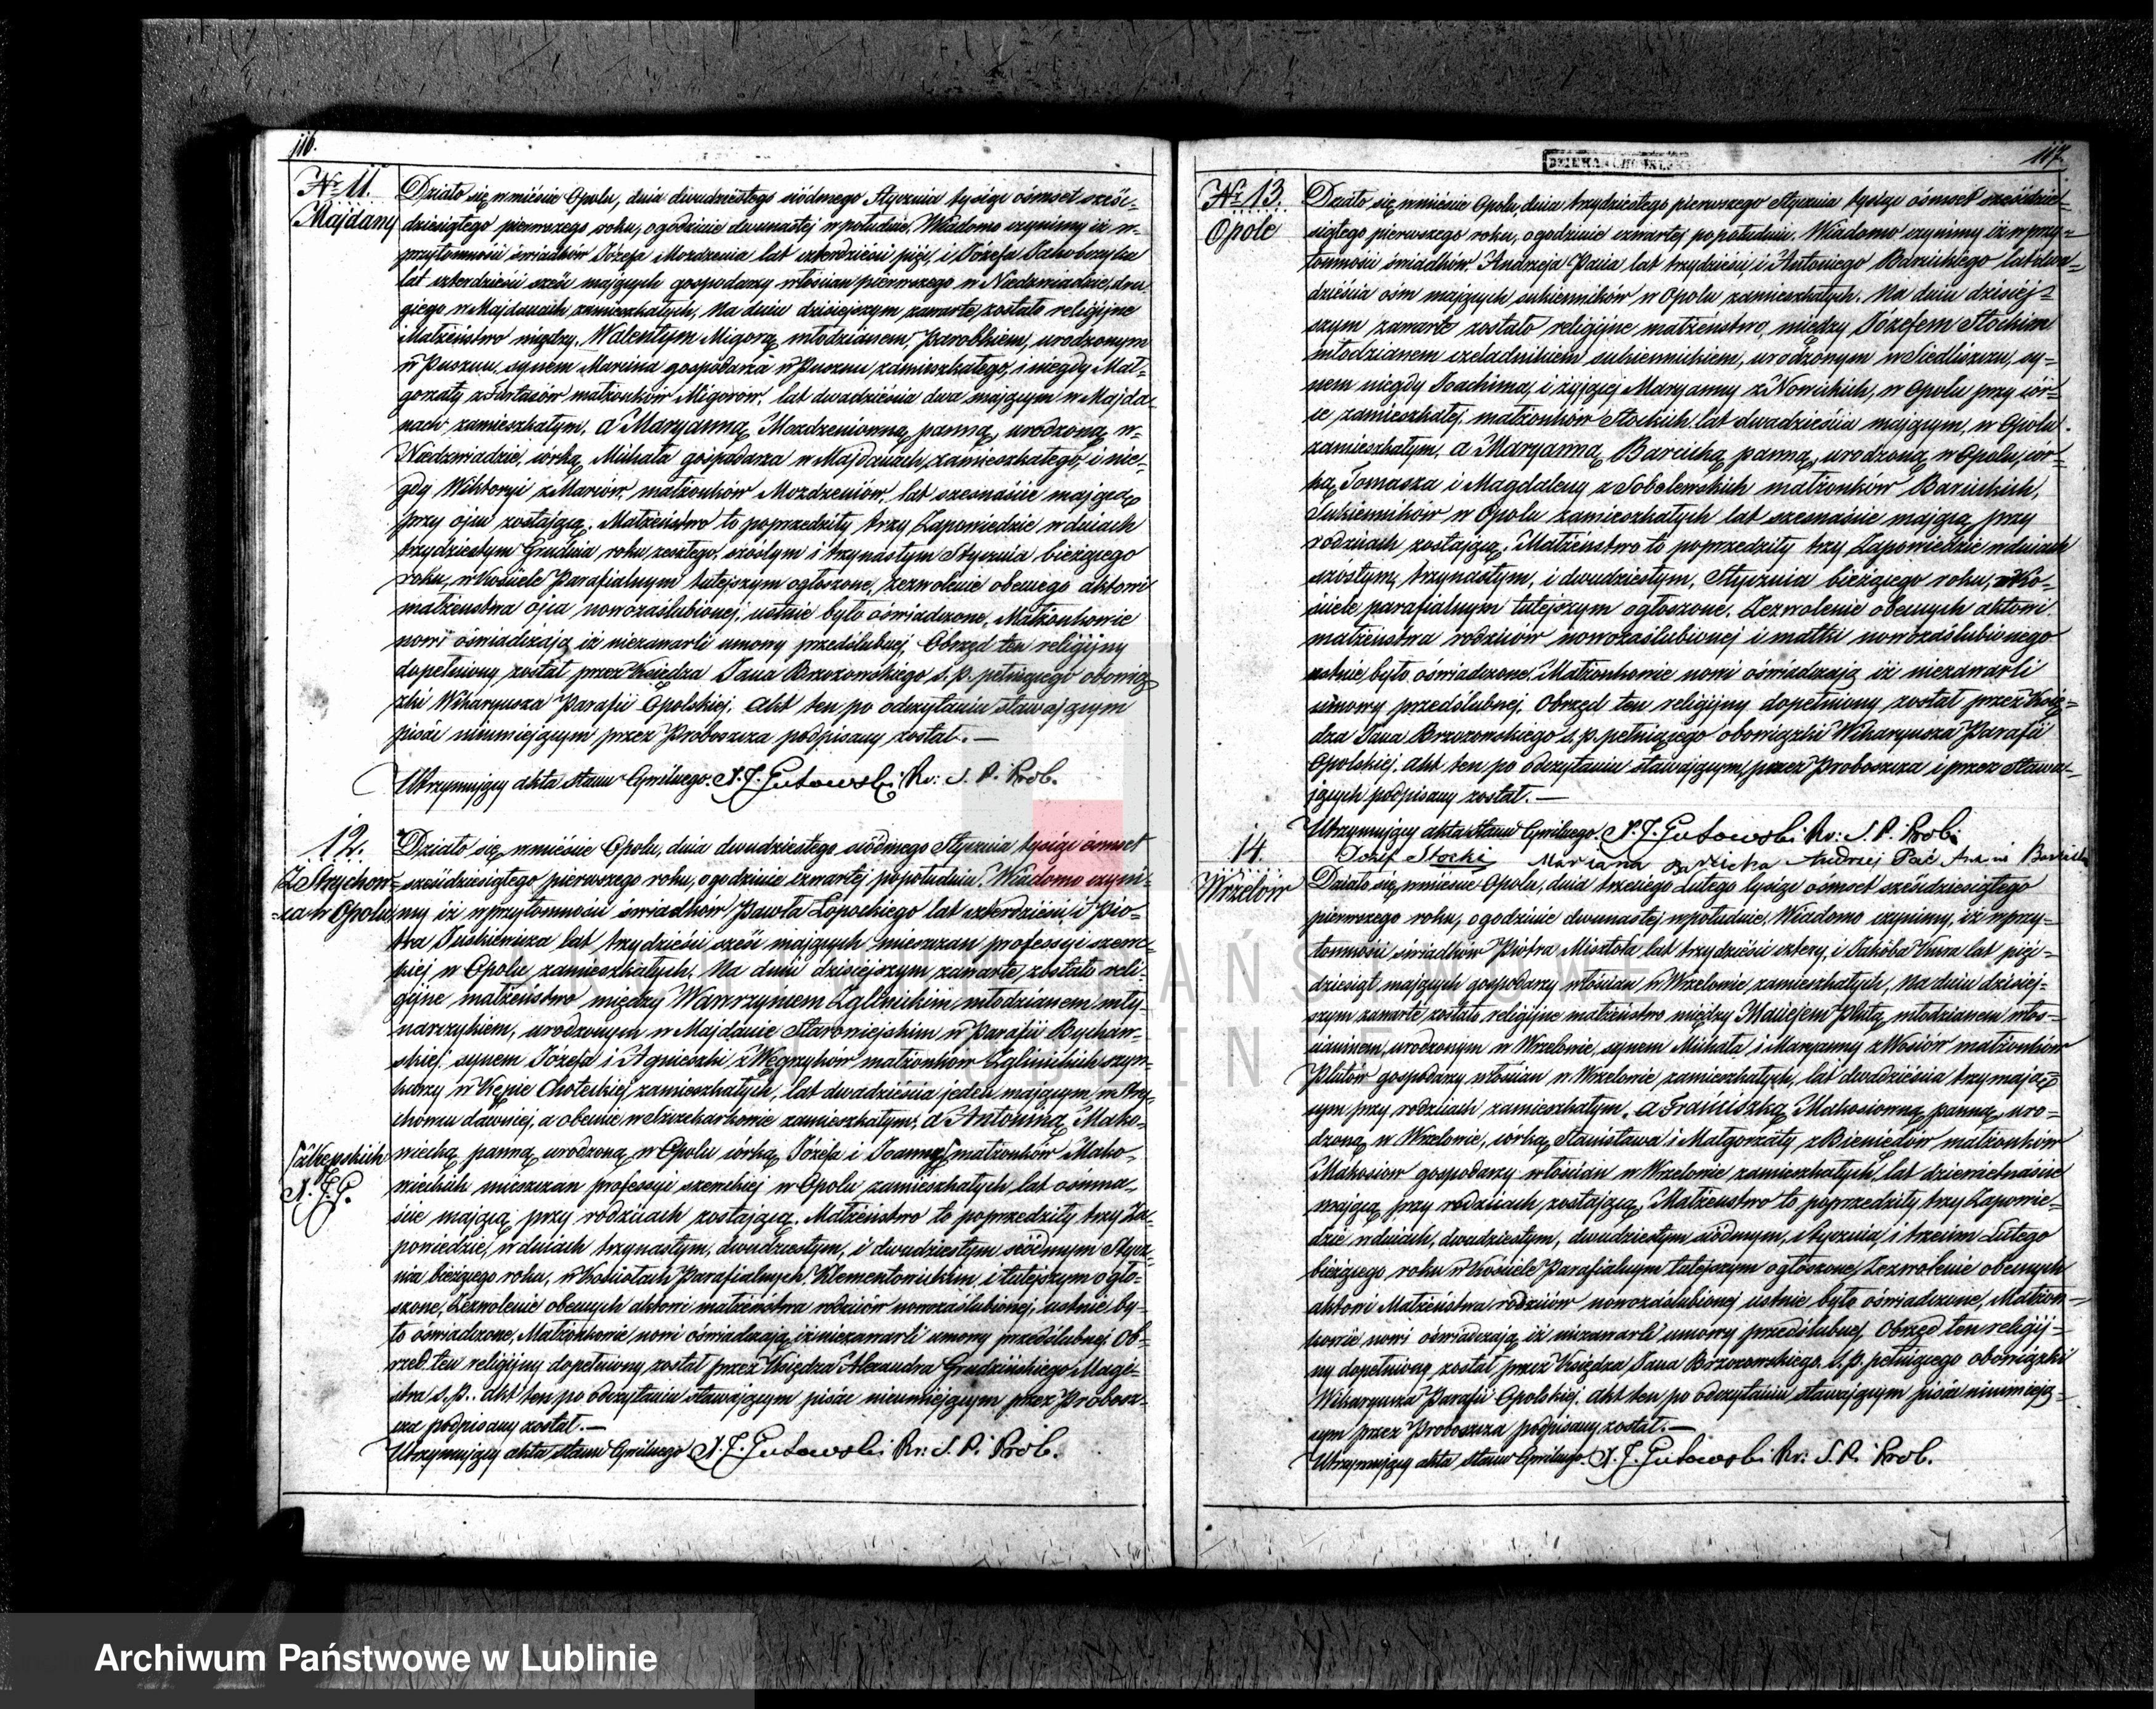 116.
Nr 11.
Majdany
Działo się w mieście Opolu, dnia dwudziestego siódmego Stycznia tysiąc ośmset sześć-
dziesiątego pierwszego roku, o godzinie dwunastej w południe. Wiadomo czynimy iż w-
przytomności świadków Józefa Mozdzenia lat czterdzieści pięć, i Józefa
lat czterdzieści sześć mających gospodarzy włościan pierwszego w Niedzwiadzie, dru-
giego w Majdanach zamieszkałych, Na dniu dzisiejszym zawarte zostało religijne
Małżeństwo między Walentym Migorą młodzianem, parobkiem, urodzonym
w Pusznu, synem Marcina gospodarza w Pusznu zamieszkałego, i niegdy Mał-
gorzaty z małżonków Migorów, lat dwadzieścia dwa mającym w Majda-
nach zamieszkałym, a Maryanną Mozdzeniowną panną, urodzoną w-
Niedzwiadzie, córką Michała gospodarza w Majdanach zamieszkałego, i nie-
gdy Wiktoryi z małżonków Mozdzeniów, lat szesnaście mającą
przy ojcu zostającą. Małżeństwo to poprzedziły trzy Zapowiedzie w dniach
trzydziestym Grudnia roku zeszłego, szóstym i trzynastym Stycznia bieżącego
roku, w Kościele Parafialnym tutejszym ogłoszone, zezwolenie obecnego aktowi
małżeństwa ojca nowozaślubionej, ustnie było oświadczone, Małżonkowie
nowi oświadczają iż niezawarli umowy przedślubnej, Obrzęd ten religijny
dopełniony został przez Księdza Jana Brzozowskiego S. P. pełniącego obowią-
zki Wikaryusza Parafii Opolskiej. Akt ten po odczytaniu stawającym
pisać nieumiejącym przez Proboszcza podpisany został. —
Utrzymujący akta stanu Cywilnego. Gutowski S. P. Prob.
12.
Z Strychow-
ca w Opolu
Działo się w mieście Opolu, dnia dwudziestego siódmego Stycznia tysiąc ośmset
sześćdziesiątego pierwszego roku, o godzinie czwartej popołudniu, Wiadomo czyni-
my iż w przytomności świadków Pawła Łopockiego lat czterdzieści, i Pio-
tra lat trzydzieści sześć mających mieszczan professyi szew-
skiej w Opolu zamieszkałych, Na dniu dzisiejszym zawarte zostało reli-
gijne małżeństwo między Wawrzyńcem Zglinickim młodzianem mły-
narczykiem, urodzonym w Majdanie Starowiejskim w Parafii Bychaw-
skiej synem Józefa i Agnieszki z Węgrzyków małżonków Zglinickich
w Kępie Choteckiej zamieszkałych, lat dwadzieścia jeden mającym w Stry-
chowcu dawniej, a obecnie w zamieszkałym, a Antoniną Mako-
wiecką panną, urodzoną w Opolu córką Józefa i Joanny małżonków Mako-
wieckich mieszczan professyi szewckiej w Opolu zamieszkałych lat ośmna-
ście mającą przy rodzicach zostającą. Małżeństwo to poprzedziły trzy Za-
powiedzie, w dniach trzynastym, dwudziestym, i dwudziestym siódmym Stycz-
nia bieżącego roku, w Kościołach Parafialnych Klementowickim, i tutejszym ogło-
szone, Zezwolenie obecnych aktowi małżeństwa rodziców nowozaślubionej, ustnie by-
ło oświadczone, Małżonkowie nowi oświadczają, iż niezawarli umowy przedślubnej, Ob-
rzęd ten religijny dopełniony został przez Księdza Alexandra Grudzińskiego Magi-
stra S. P. Akt ten po odczytaniu stawającym pisać nieumiejącym przez Probosz-
cza podpisany został. —
Utrzymujący akta stanu Cywilnego Gutowski S. P. Prob.
117.
Nr 13.
Opole
Działo się w mieście Opolu, dnia trzydziestego pierwszego Stycznia tysiąc ośmset sześćdzie-
siątego pierwszego roku, o godzinie czwartej popołudniu. Wiadomo czynimy iż w przy-
tomności świadków, Andrzeja Pacia lat trzydzieści, i Antoniego Barzickiego lat dwa-
dzieścia ośm mających sukienników w Opolu zamieszkałych. Na dniu dzisiej-
szym zawarte zostało religijne małżeństwo, między Józefem Stockim
młodzianem czeladnikiem sukiennickim, urodzonym w Siedliszczu, sy-
nem niegdy Joachima, i żyjącej Maryanny z Nowickich, w Opolu przy cór-
ce zamieszkałej małżonków Stockich lat dwadzieścia mającym, w Opolu
zamieszkałym, a Maryanną Barzicką panną, urodzoną w Opolu, cór-
ką Tomasza i Magdaleny z Sobolewskich małżonków Barzickich,
Sukienników w Opolu zamieszkałych lat szesnaście mającą przy
rodzicach zostającą. Małżeństwo to poprzedziły trzy Zapowiedzie w dniach
szóstym, trzynastym, i dwudziestym, Stycznia bieżącego roku, w Ko-
ściele parafialnym tutejszym ogłoszone. Zezwolenie obecnych aktowi
małżeństwa rodziców nowozaślubionej i matki nowozaślubionego
ustnie było oświadczone. Małżonkowie nowi oświadczają iż niezawarli
umowy przedślubnej. Obrzęd ten religijny dopełniony został przez Księ-
dza Jana Brzozowskiego S. P. pełniącego obowiązki Wikaryusza Parafii
Opolskiej. Akt ten po odczytaniu stawającym, przez Proboszcza i przez stawa-
jących podpisany został. —
Utrzymujący akta stanu Cywilnego. Gutowski S. P. Prob.
Józef Stocki Marianna Barzicka Andrzej Pać
14.
Wrzelów
Działo się w mieście Opolu, dnia trzeciego Lutego tysiąc ośmset sześćdziesiątego
pierwszego roku, o godzinie dwunastej w południe, Wiadomo czynimy, iż w przy-
tomności świadków Piotra Misztala lat trzydzieści cztery, i Jakóba lat pięć-
dziesiąt mających gospodarzy włościan w Wrzelowie zamieszkałych, Na dniu dzisiej-
szym zawarte zostało religijne małżeństwo między Maciejem Plutą młodzianem włoś-
cianinem, urodzonym w Wrzelowie, synem Michała i Maryanny z Wosiów małżonków
Plutów gospodarzy włościan w Wrzelowie zamieszkałych, lat dwadzieścia trzy mają-
cym przy rodzicach zamieszkałym, a Franciszką Makosiowną panną, uro-
dzoną w Wrzelowie, córką Stanisława i Małgorzaty z Bieniedów małżonków
Makosiow gospodarzy włościan w Wrzelowie zamieszkałych, lat dziewietnaście
mającą przy rodzicach zostającą, Małżeństwo to poprzedziły trzy Zapowie-
dzie w dniach, dwudziestym, dwudziestym siódmym, Stycznia, i trzecim Lutego
bieżącego roku w Kościele Parafialnym tutejszym ogłoszone, Zezwolenie obecnych
aktowi Małżeństwa rodziców nowozaślubionej ustnie było oświadczone, Małżon-
kowie nowi oświadczają iż niezawarli umowy przedślubnej, Obrzęd ten religij-
ny dopełniony został przez Księdza Jana Brzozowskiego S. P. pełniącego obowiązki
Wikaryusza Parafii Opolskiej. Akt ten po odczytaniu stawającym pisać nieumieją-
cym przez Proboszcza podpisany został. —
Utrzymujący akta stanu Cywilnego. Gutowski S. P. Prob.
ARCHIWUM PAŃSTWOWE
W LUBLINIE
Archiwum Państwowe w Lublinie